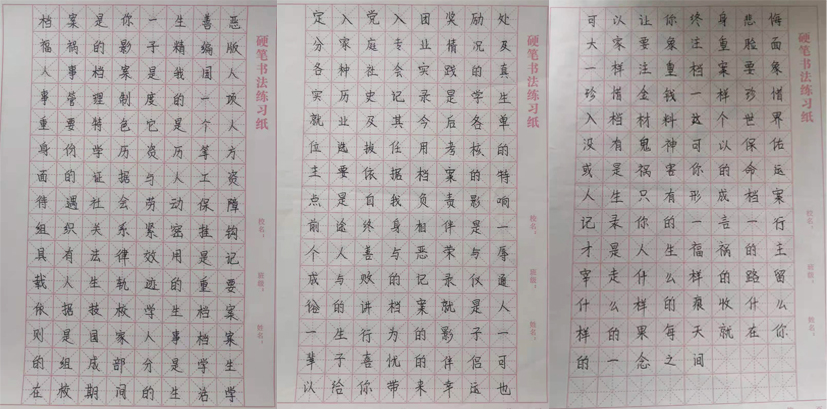 硬笔书法练习纸
档案是你一生善恶
福祸的影子精编版
人事档案是我国人
事管理制度的一项
重要特色它是个人
身份学历资历等方
面的证据与人工资
待遇社会劳动保障
组织关系紧密挂钩
具有法律效用是记
载人生轨迹的重要
依据技校学生档案
则是国家人事档案
的组成部分是学生
在校期间的生活学
硬笔书法练习纸
定入党入团奖励处
分家庭专业情况及
各种社会实践的真
实历史记录是学生
就业及其今后各单
位选拔任用考核的
主要依据档案的特
点是自我负责影响
前途终身相伴是一
个人善与恶荣与辱
成与败的记录仪通
俗的讲档案就是人
一生行为的影子一
辈子喜忧的伴侣可
以给你带来幸运也
硬笔书法练习纸
可以让你终身悲悔
大家要象注重脸面
一样注重档案要象
珍惜金钱一样珍惜
入档材料这个世界
没有鬼神可以保佑
或是祸害你的命运
人生只有形成档案
记录你的一言一行
才是人生福祸的主
宰走什么样的路留
什么样的痕收什么
样的果每天就在你
的一念之间